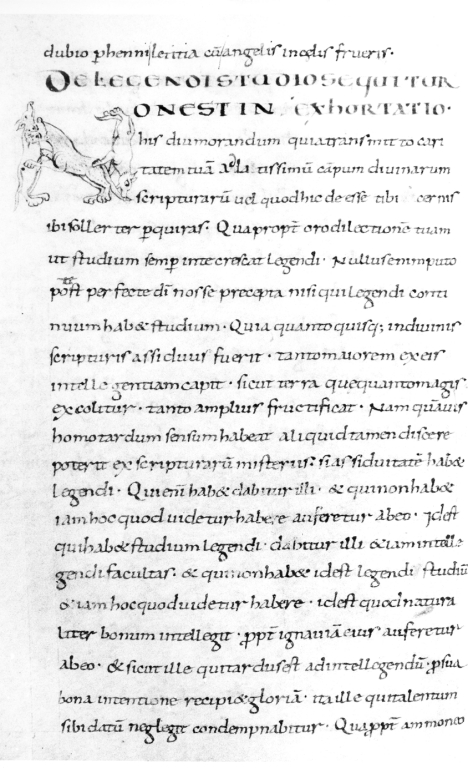 dubio ꝑhenni letitia cū angelis in celis frueris·
DE LEGENDI STUDIO SEQUITUR
ONEST IN EXHORTATIO·
his diu morandum quia transmitto cari
tatem tuā ad latissimū cāpum diuinarum
scripturarū uel quod hic deesse tibi cernis
ibi sollerter ꝑquiras· Quapropt̄ oro dilectionē tuam
ut studium semꝑ in te crescat legendi· Nullus enim puto
potest perfecte dī nosse precepta nisi qui legendi conti
nuum hab& studium· Quia quanto quisq; in diuinis
scripturis assiduus fuerit· tanto maiorem ex eis
intellegentiam capit· sicut terra que quanto magis
excolitur· tanto amplius fructificat· Nam quāuis
homo tardum sensum habeat aliquid tamen discere
poterit ex scripturarū misteriis· si assiduitatē hab&
legendi· Qui enī hab& dabitur illi· & qui non hab&
iam hoc quod uidetur habere auferetur ab eo· Idest
qui hab& studium legendi· dabitur illi &iam intelle
gendi facultas· & qui non hab& idest legendi studiū
&iam hoc quod uidetur habere· idest quod natura
liter bonum intellegit· ꝓpt̄ ignauiā eius auferetur
ab eo· & sicut ille qui tardus est ad intellegendū· ꝓ sua
bona intentione recipi& gloriā· ita ille qui talentum
sibi datū neglegit condempnabitur· Quaꝓpt̄ ammoneo